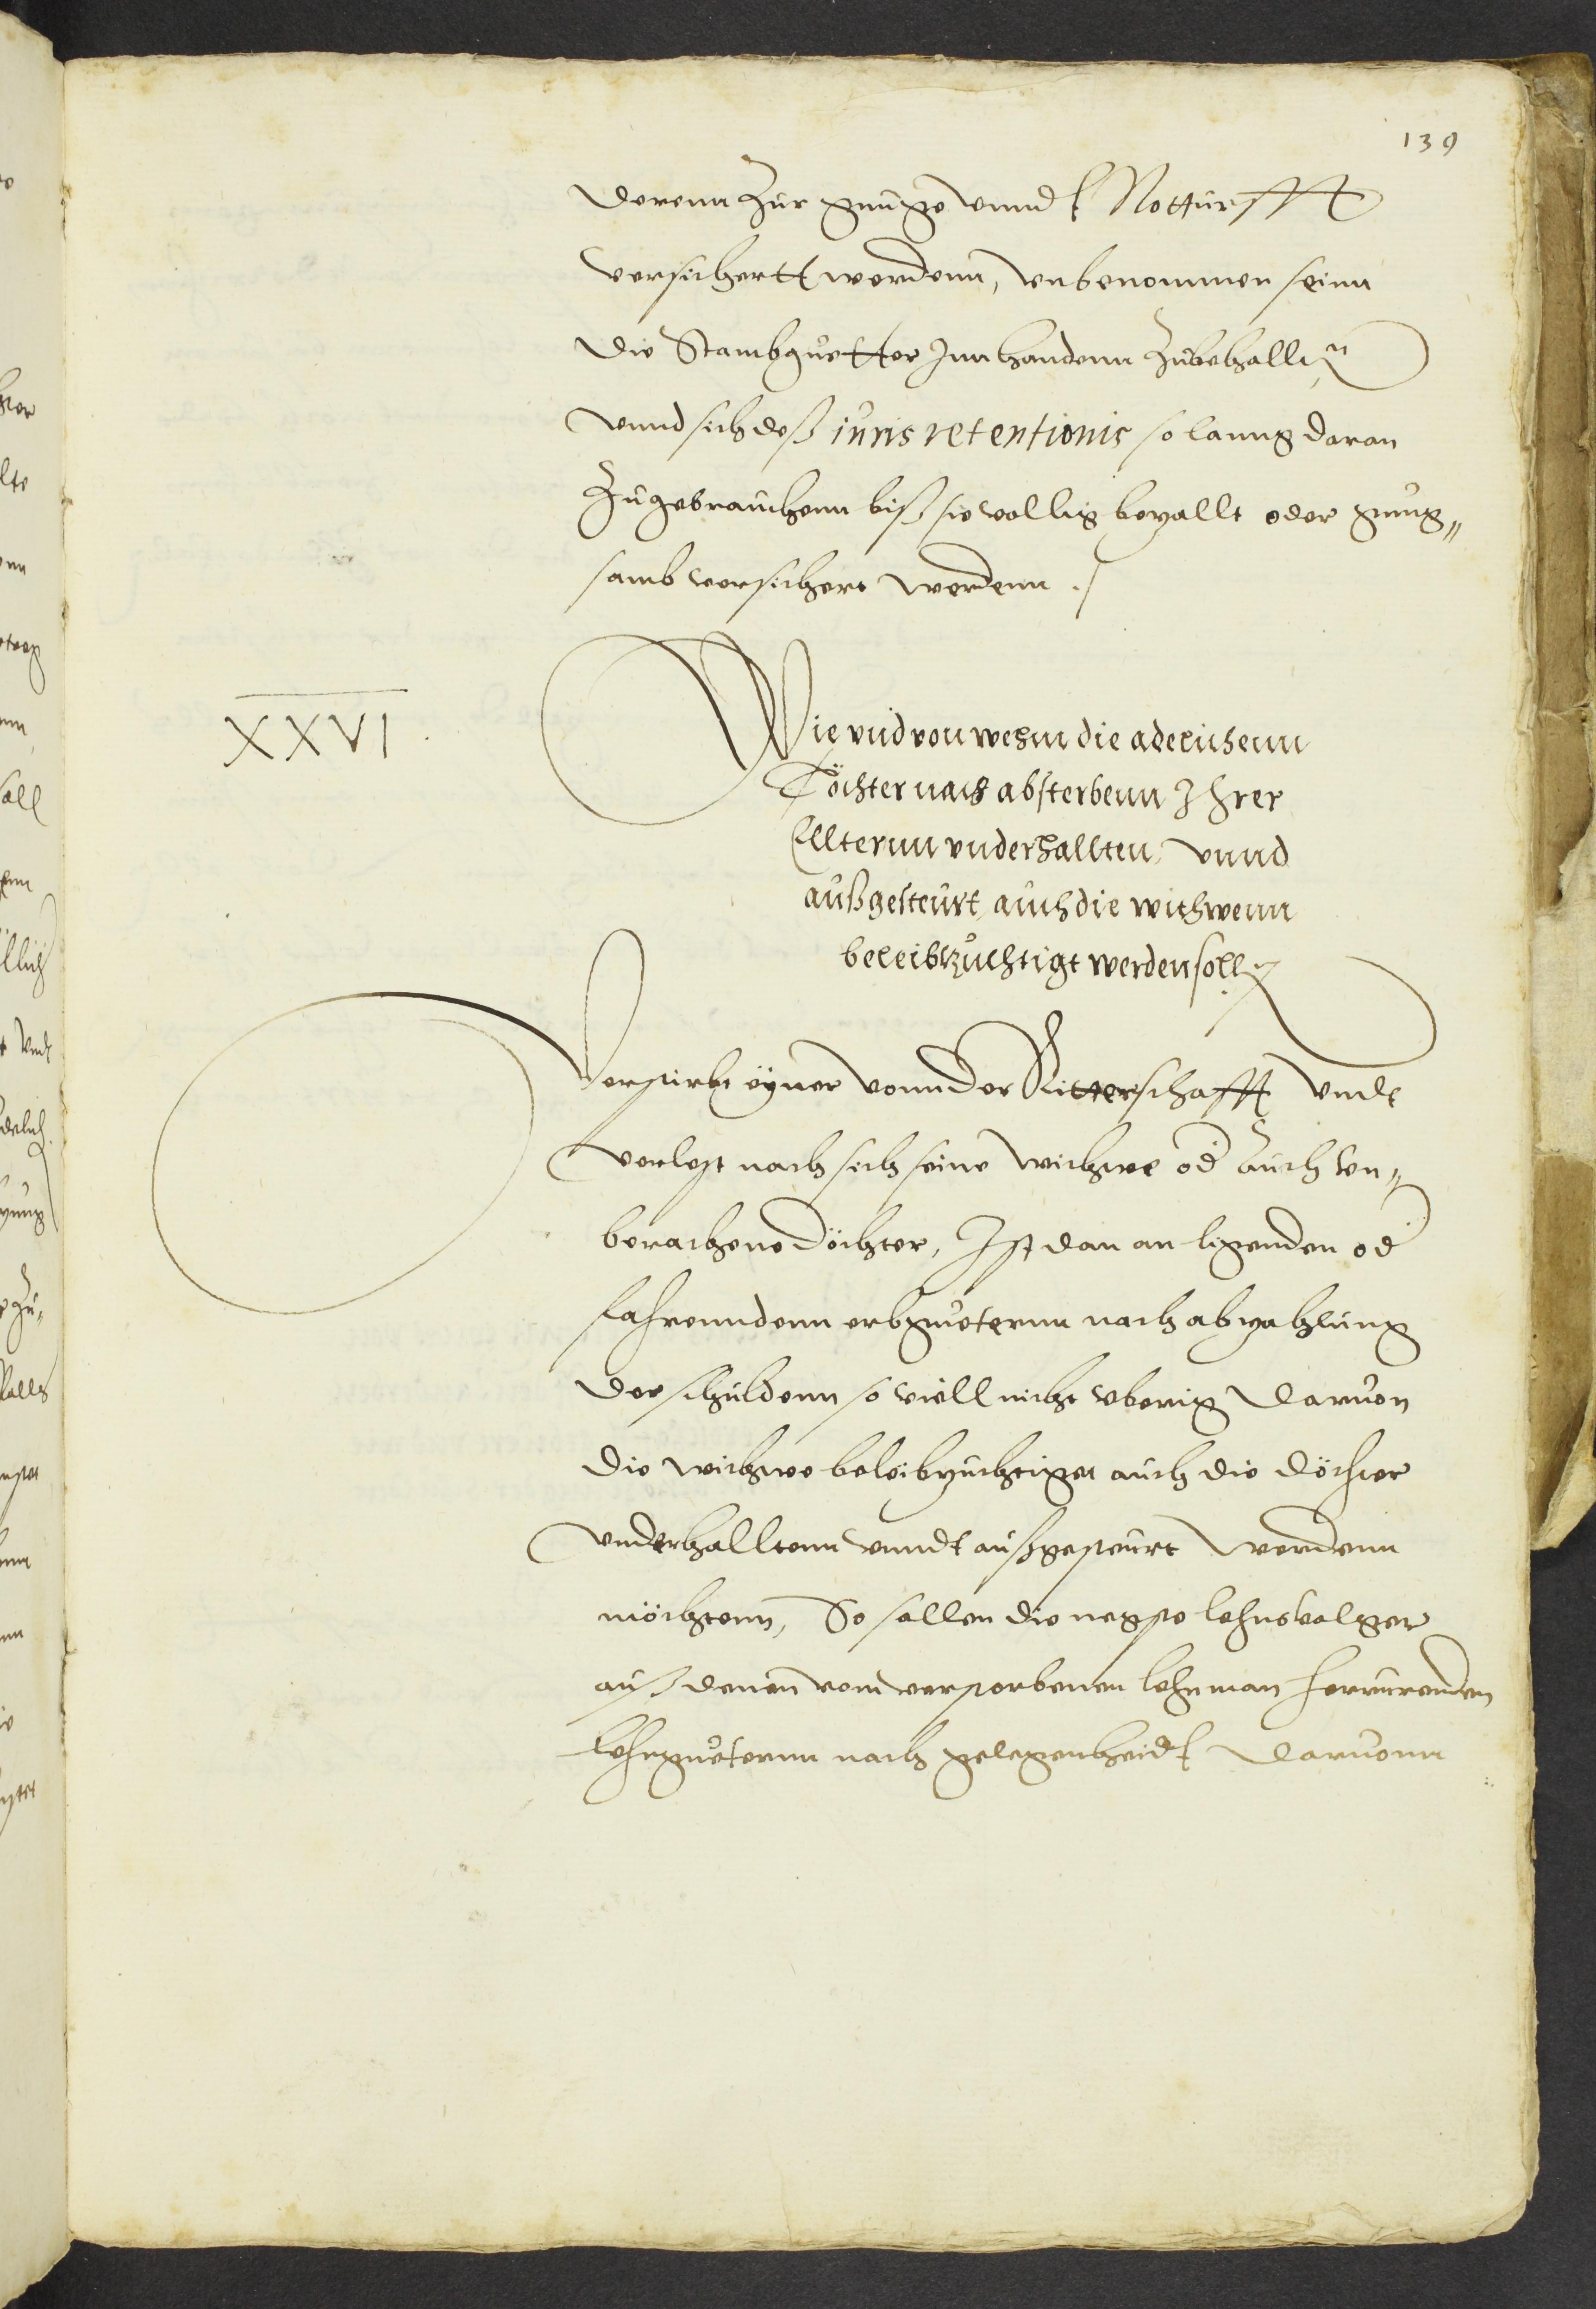 139
derenn zur gnuge vnndt Notturfft
versichertt werdenn, vnbenommen seinn
die Stambguetter Inn handenn zubehallten
vnnd sich deß iuris retentionis so lanng daran
zugebrauchenn biß sie vollig bezallt oder gnug„
samb versichert werdenn ./
XXVI.
Wie vnd von wehm die adelichenn
Töchter nach absterbenn Ihrer
Ellternn vnderhallten, vnnd
außgesteurt, auch die withwenn
beleibzuchtigt werden sollen
Verstirbt eÿner vonn der Ritterschafft vndt
verlest nach sich seine withwe od auch vn„
berathene döchter, Ist dan an ligenden od
fahrenndenn erbgueternn nach abzahlung
der schuldenn so viell nicht vberig daruon
die withwe beleibzuchtiget auch die döchter
vnderhalltenn vnndt außgesteurt werdenn
möchtenn, So sollen die negste lehnsvolger
auß denen vom verstorbenen lehnman herrurenden
lehnguetternn nach gelegenheidt daruonn